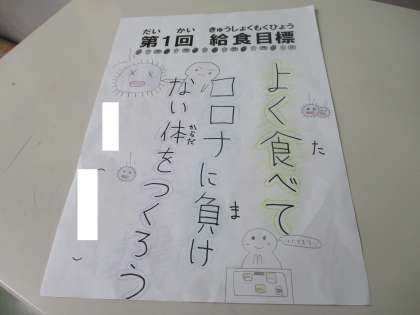 だい かい きゅうしょくもくひょう
第1回 給食目標
よく食べて
た
コロナに負け
ま
ない体をつくろう
からだ
いただきます